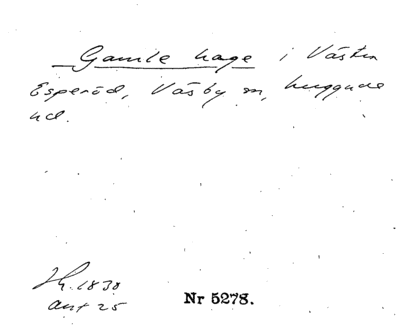 Gamle hage i Västra
Esperöd, Väsby sn, Luggude
hd.
Hg. 1830
ant 25
Nr 5278.